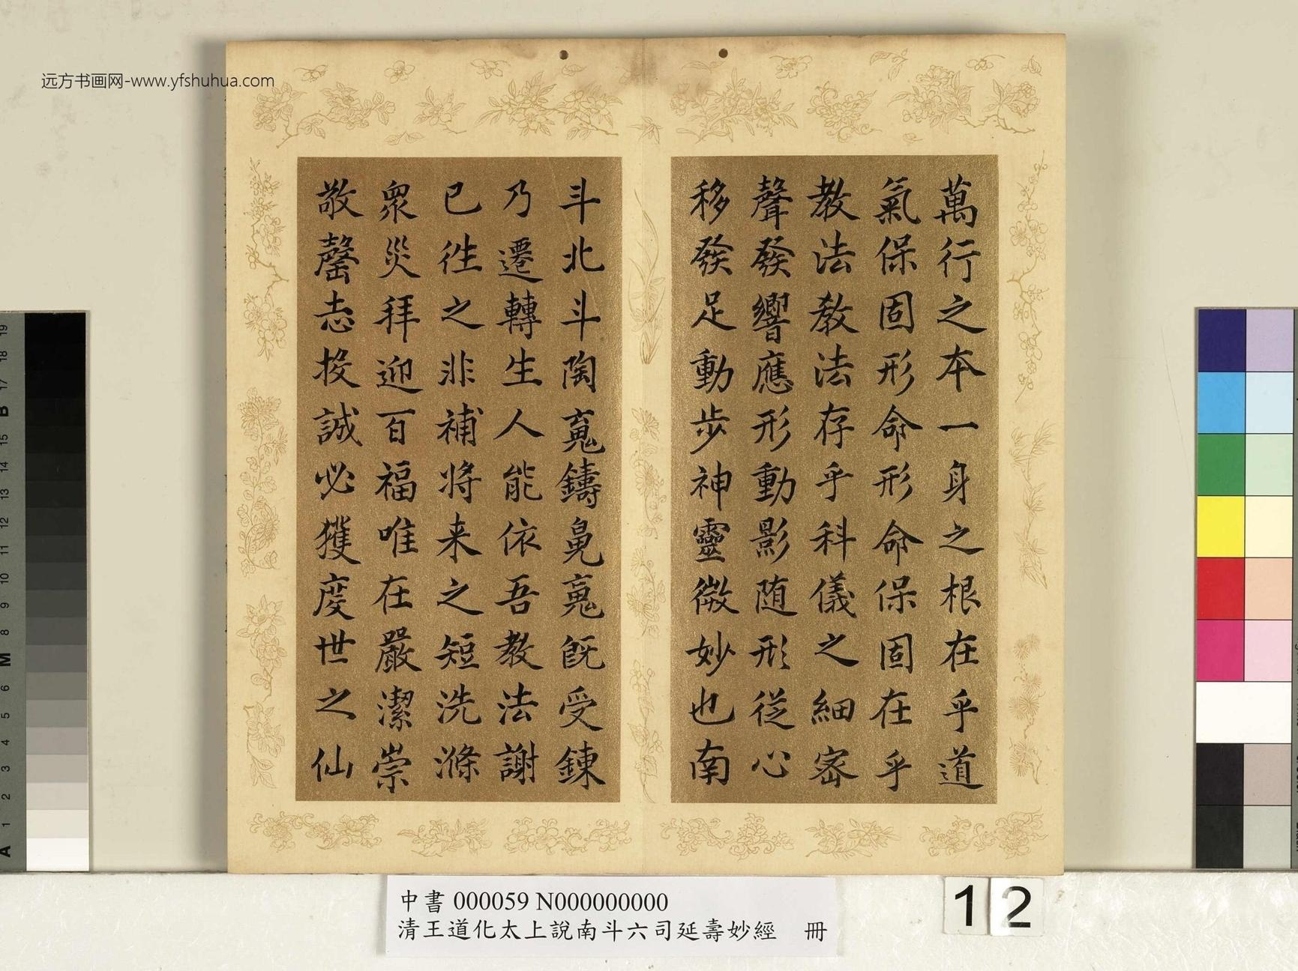 远方书画网-www.yfshuhua.com
萬行之本一身之根在乎道
氣保固形命形命保固在乎
教法教法存乎科儀之細密
聲發響應形動影随形從心
移發足動步神靈微妙也南
斗北斗陶䰟鑄鼻䰟既受鍊
乃遷轉生人能依吾教法謝
已徃之非補将来之短洗滌
衆災拜迎百福唯在嚴潔崇
敬罄志投誠必獲度世之仙
中書 000059 N000000000
清王道化太上說南斗六司延壽妙經 冊
12
19
18
17
B
15
14
13
12
11
10
9
8
M
6
5
4
3
2
1
A